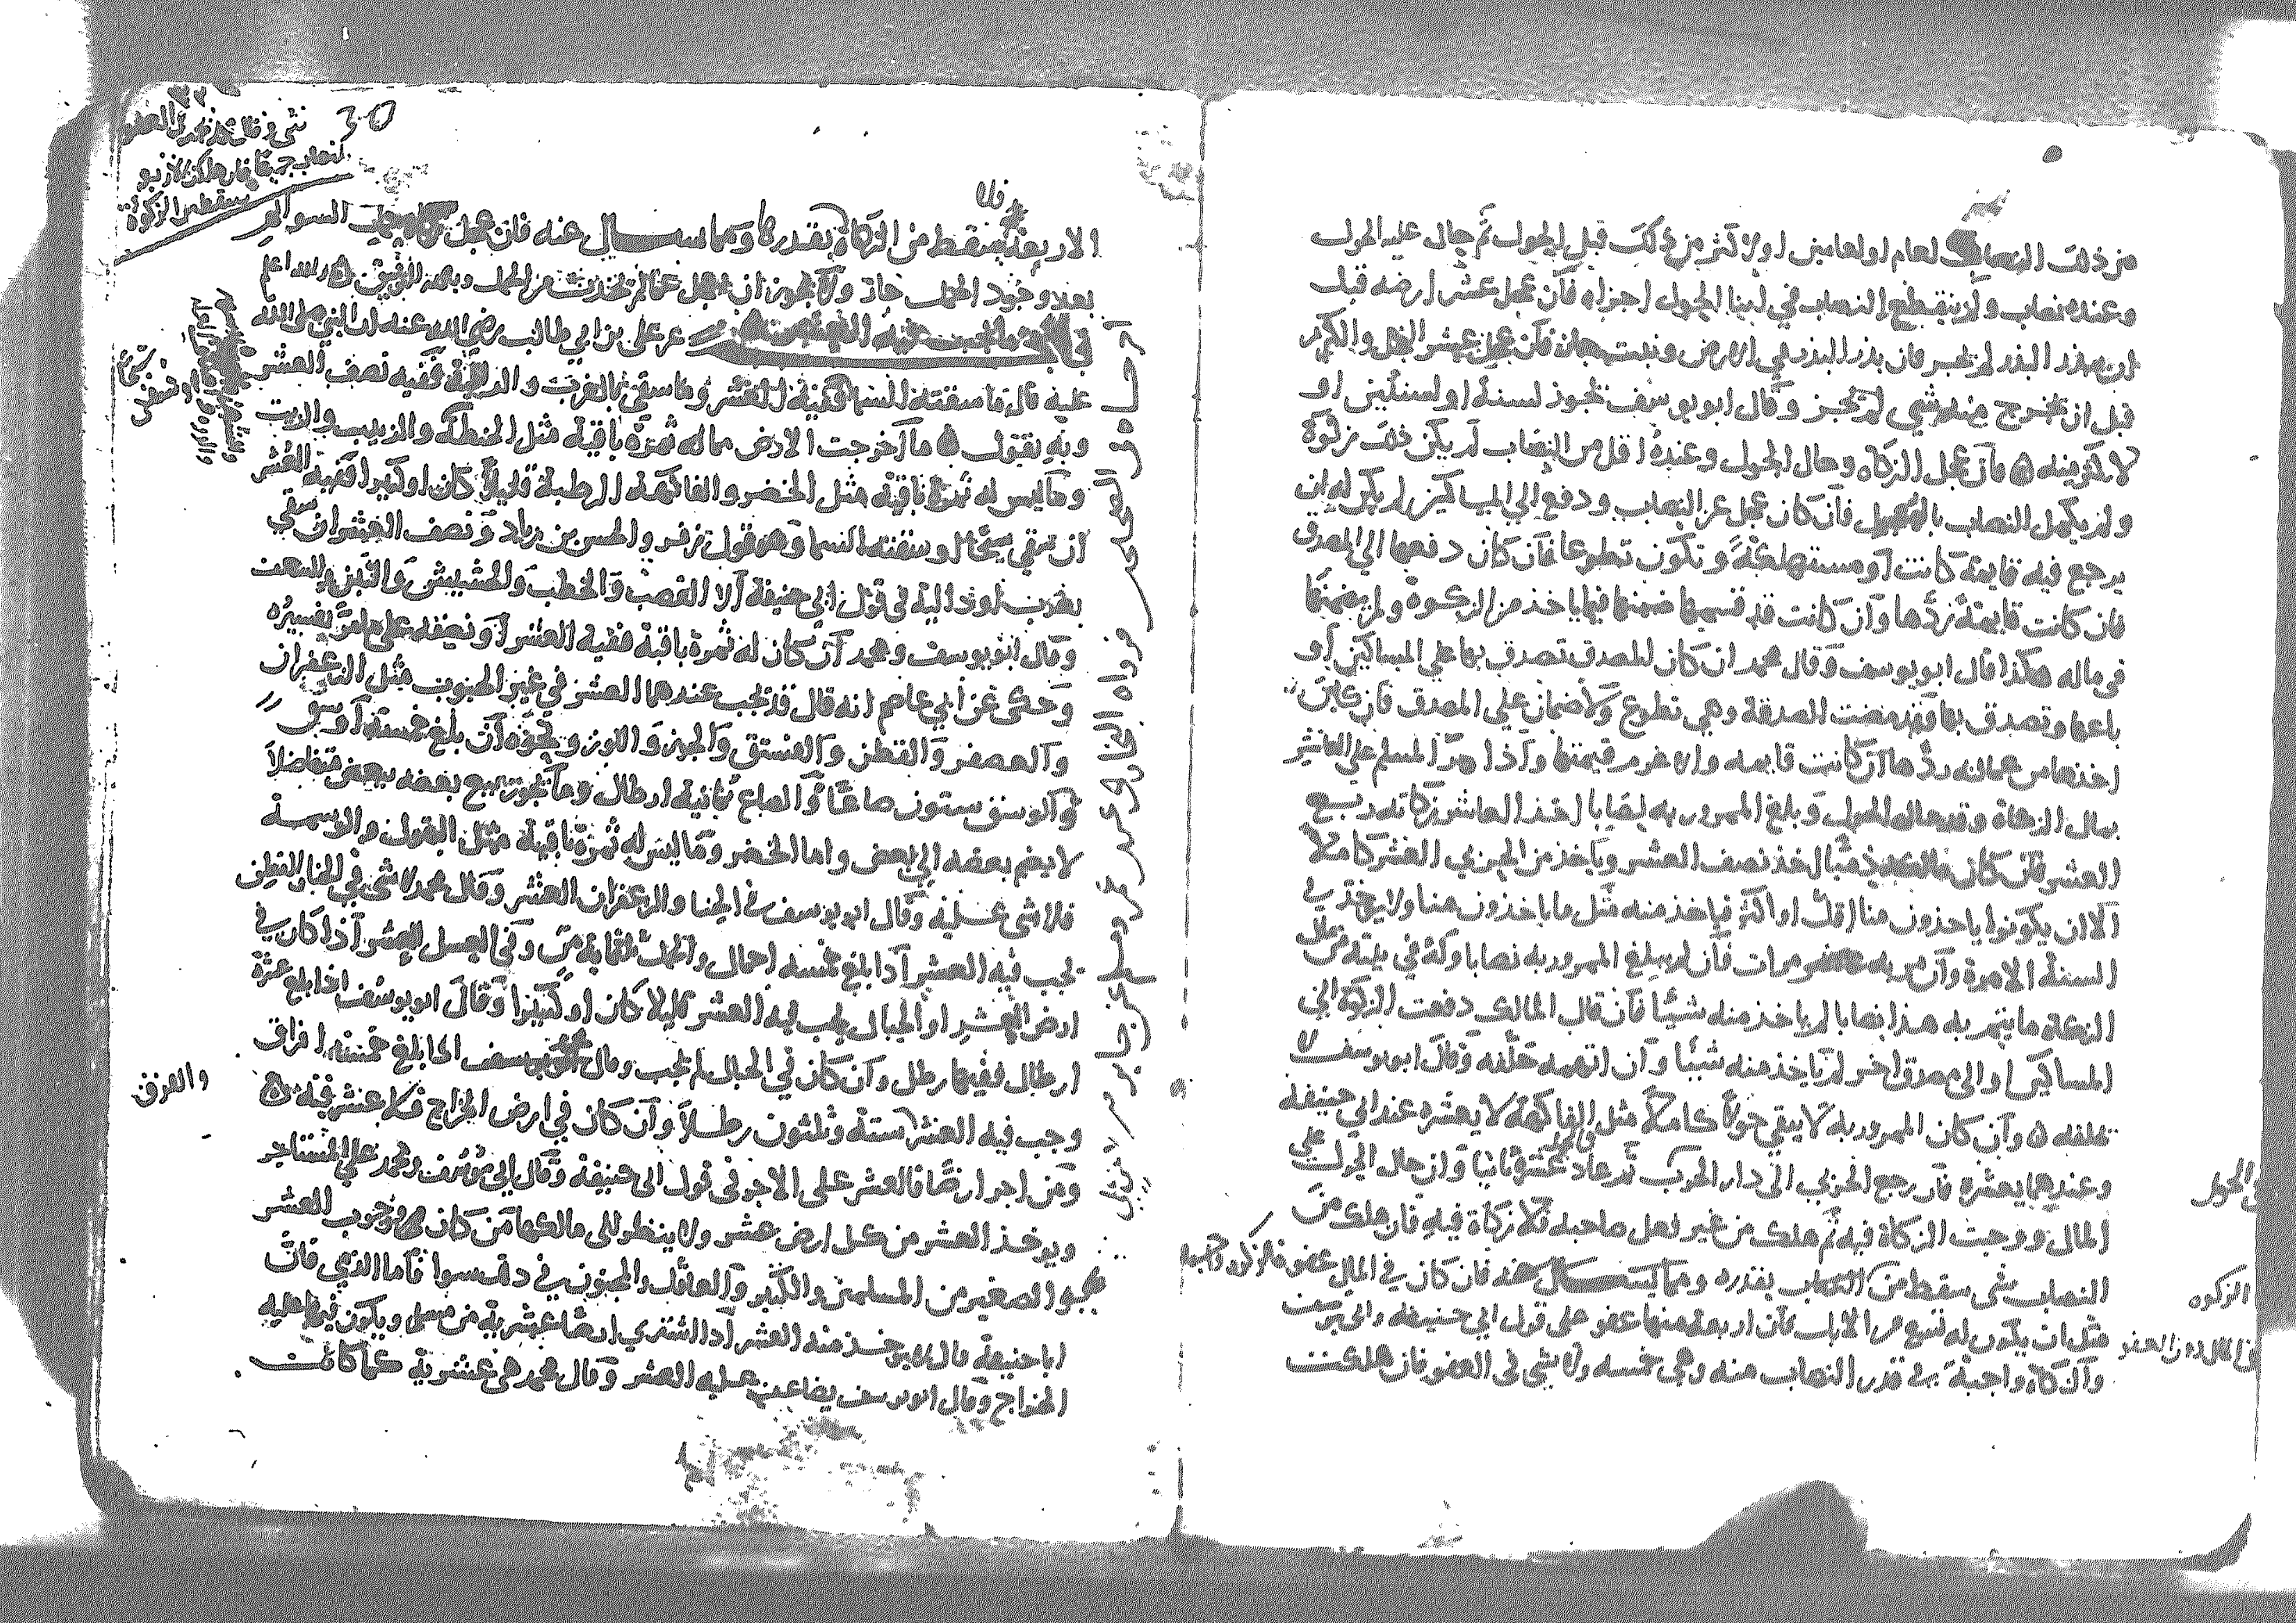 من ذلك النصاب لعام او لعامين او لاكثر من ذلك قبل الحول ثم حال عليه الحول
وعنده نصاب ولم ينقطع النصاب في اثنا الحول اجزاه فان عجل عشر ارضه قبل
ان يبذر البذر لم تجز فان بذر البذر في الارض ونبت جاز فان عجل عشر النخل والكرم
قبل ان يخرج منه شي لم تجز وقال ابو يوسف تجوز لسنة او لسنتين او
لاكثر منه فان عجل الزكاة وحال الحول وعنده اقل من النصاب لم يكن ذلك زكوة
ولم يكمل النصاب بالمعجل فان كان عجل عن النصاب ودفع الي المساكين لم يكن له ان
يرجع فيه قايمة كانت او مستهلكة وتكون تطوعا فان كان دفعها الي المصدق
فان كانت قايمة ردها وان كانت قد قسمها ضمنها فيما ياخذ من الزكوة ولم يضمنها
في ماله هكذا قال ابو يوسف وقال محمد ان كان المصدق تصدق بها علي المساكين او
باعها وتصدق بها فقد مضت الصدقة وهي تطوع ولا ضمان علي المصدق فان كان
اخذها من عمالته ردها ان كانت قايمه والا غرم قيمتها واذا مر المسلم علي العاشر
بمال الزكاة وقد حال الحول وبلغ الممرور به نصابا اخذ العاشر زكاته ربع
العشر فان كان مالكه ذميا اخذ نصف العشر وياخذ من الحربي العشر كاملا
الا ان يكونوا ياخذون منا اقل او اكثر فياخذ منه مثل ما ياخذون منا ولا يوخذ في
السنة الا مرة وان مر به عشر مرات فان لم يبلغ الممرور به نصابا وله في بيته من مال
الزكاة ما يتم به هذا نصابا لم ياخذ منه شيئا فان قال المالك دفعت الزكاة الي
المساكين او الى مصدق اخر لم ياخذ منه شيئا وان اتهمه حلفه وقال ابو يوسف لا
يحلفه وان كان الممرور به لا يبقي حولا كاملا مثل الفاكهة لا يعشره عند ابي حنيفة
وعندهما يعشره فان رجع الحربي الى دار الحرب ثم عاد عشره ثانيا وان حال الحول علي
المال ووجبت الزكاة فيه ثم هلك من غير فعل صاحبه فلا زكاة فيه فان هلك من
النصاب شي سقط من النصاب بقدره ومما يسال عنه فان كان في المال عفو
مثل ان يكون له تسع من الابل فان اربعة منها عفو على قول ابي حنيفة وابي يوسف
والزكاة واجبة في قدر النصاب منه وهي خمسه ولا شي في العفو فان هلكت
الحول
الزكوه
30
الاربعة سقط من الزكاة بقدرها ومما يسال عنه فان عجل السوايم
بعد وجود الحمل جاز ولا يجوز ان يعجل عما لم يحدث من الحمل وبالله التوفيق والله اعلم
عن علي بن ابي طالب رضي الله عنه ان النبي صلى الله
عليه قال ما سقته السما ففيه العشر وما سقي بالغرب والدالية ففيه نصف العشر
وبه نقول ما اخرجت الارض مما له ثمرة باقية مثل الحنطة والزبيب والزيت
وما ليس له ثمرة باقية مثل الخضر والفاكهة الرطبة قليلا كان او كثيرا ففيه العشر
ان سقي سيحا او سقته السما وهو قول زفر والحسن بن زياد ونصف العشر ان سقي
بغرب او دالية في قول ابي حنيفة الا القصب والحطب والحشيش والتبن والسعف
وقال ابو يوسف ومحمد ان كان له ثمرة باقية ففيه العشر او نصفه على ما مر تفسيره
وحكى عن ابي عاصم انه قال قد يجب عندهما العشر في غير الحبوب مثل الزعفران
والعصفر والقطن والفستق والجوز واللوز ونحوه ان بلغ خمسة اوسق
والوسق ستون صاعا والصاع ثمانية ارطال وما يجوز بيع بعضه ببعض متفاضلا
لا يضم بعضه الي بعض واما الخضر وما ليس له ثمرة باقية مثل البقول والوسمة
فلا شي عليه وقال ابو يوسف في الحنا والزعفران العشر وقال محمد لا شي في الحنا والقطن
يجب فيه العشر اذا بلغ خمسه احمال والحمل ثلثماية من وفي العسل العشر اذا كان في
ارض العشر او الجبال يجب فيه العشر قليلا كان او كثيرا وقال ابو يوسف اذا بلغ عشرة
ارطال ففيها رطل وان كان في الجبال لم يجب وقال اذا بلغ خمسة افراق
وجب فيه العشر ستة وثلثون رطلا وان كان في ارض الخراج فلا عشر فيه
ومن اجر ارضا فالعشر على الاجر في قول ابي حنيفة وقال ابي يوسف ومحمد علي المستاجر
ويوخذ العشر من كل ارض عشر ولا ينظر الى مالكها من كان وجوب العشر
الصغير من المسلمين والكبير والعاقل والمجنون في ذلك سوا فاما الذمي فان
ابا حنيفة قال لا يوخذ منه العشر اذا اشترى ارضا عشرية من مسلم ويكون فيها عليه
الخراج وقال ابو يوسف يضاعف عليه العشر وقال محمد هي عشرية كما كانت
والفرق